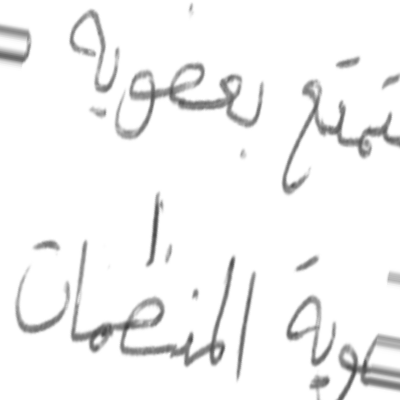 تمتع بعضوية
وية المنظمات